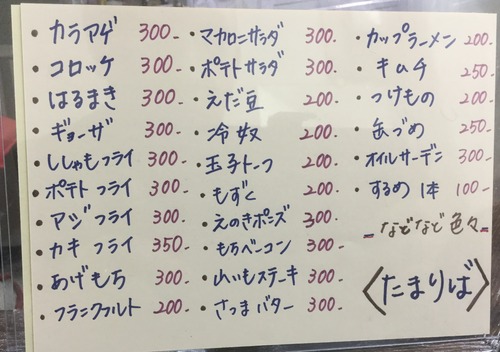 • カラアゲ 300-
• コロッケ 300-
• はるまき 300-
• ギョーザ 300-
• ししゃもフライ 300-
• ポテトフライ 300-
• アジフライ 300-
• カキフライ 350-
• あげもち 300-
• フランクフルト 200-
• マカロニサラダ 300-
• ポテトサラダ 300-
• えだ豆 200-
• 冷奴 200-
• 玉子トーフ 200-
• もずく 200-
• えのきポンズ 300-
• もちベーコン 300-
• 山いもステーキ 300-
• さつまバター 300-
• カップラーメン 200-
• キムチ 250-
• つけもの 200-
• 缶づめ 250-
• オイルサーデン 300-
• するめ 1本 100-
- などなど色々 -
〈たまりば〉